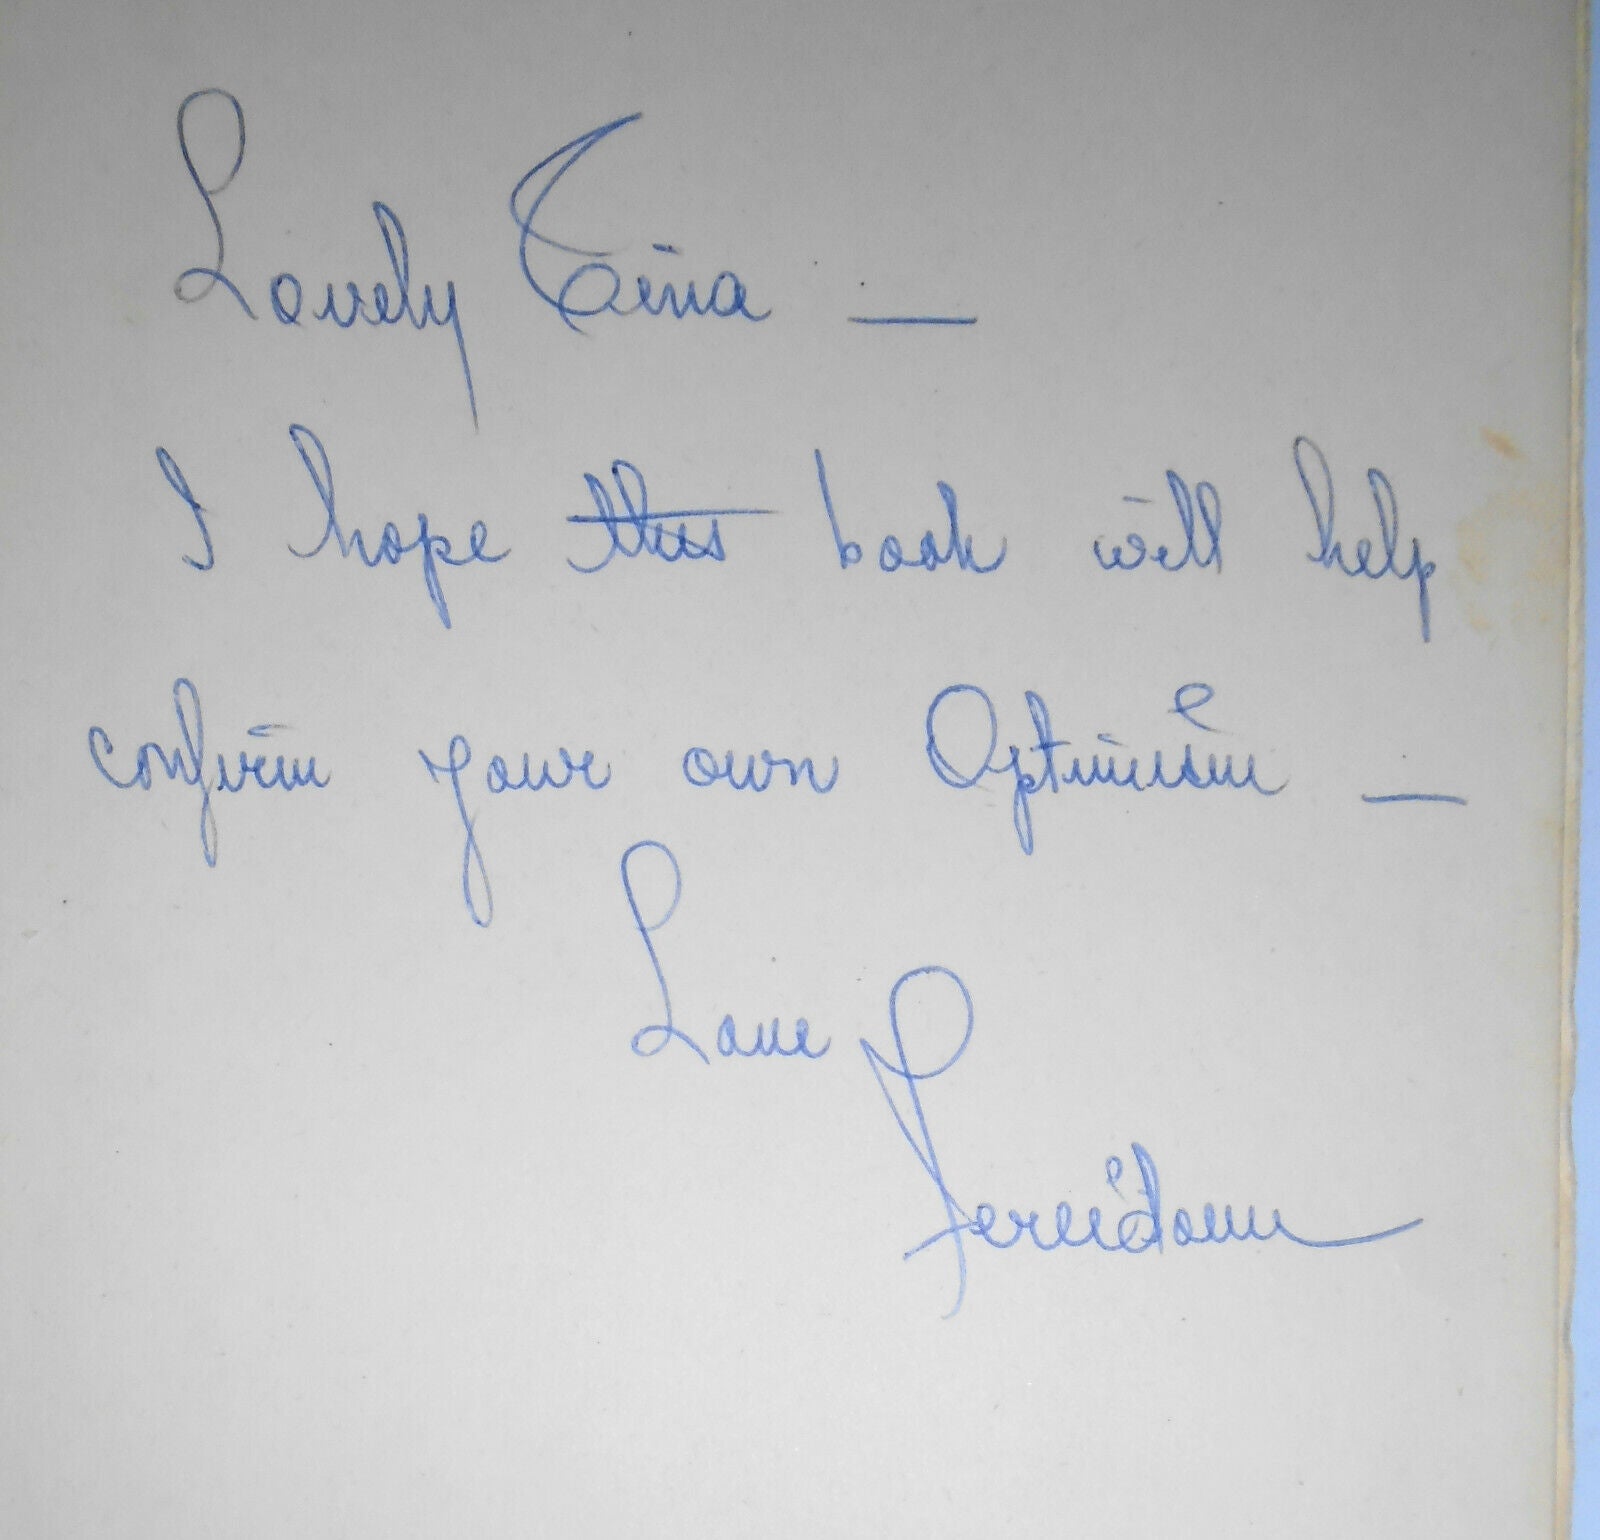 Lovely Tina —
I hope this book will help
confirm your own Optimism —
Love Fereidoun